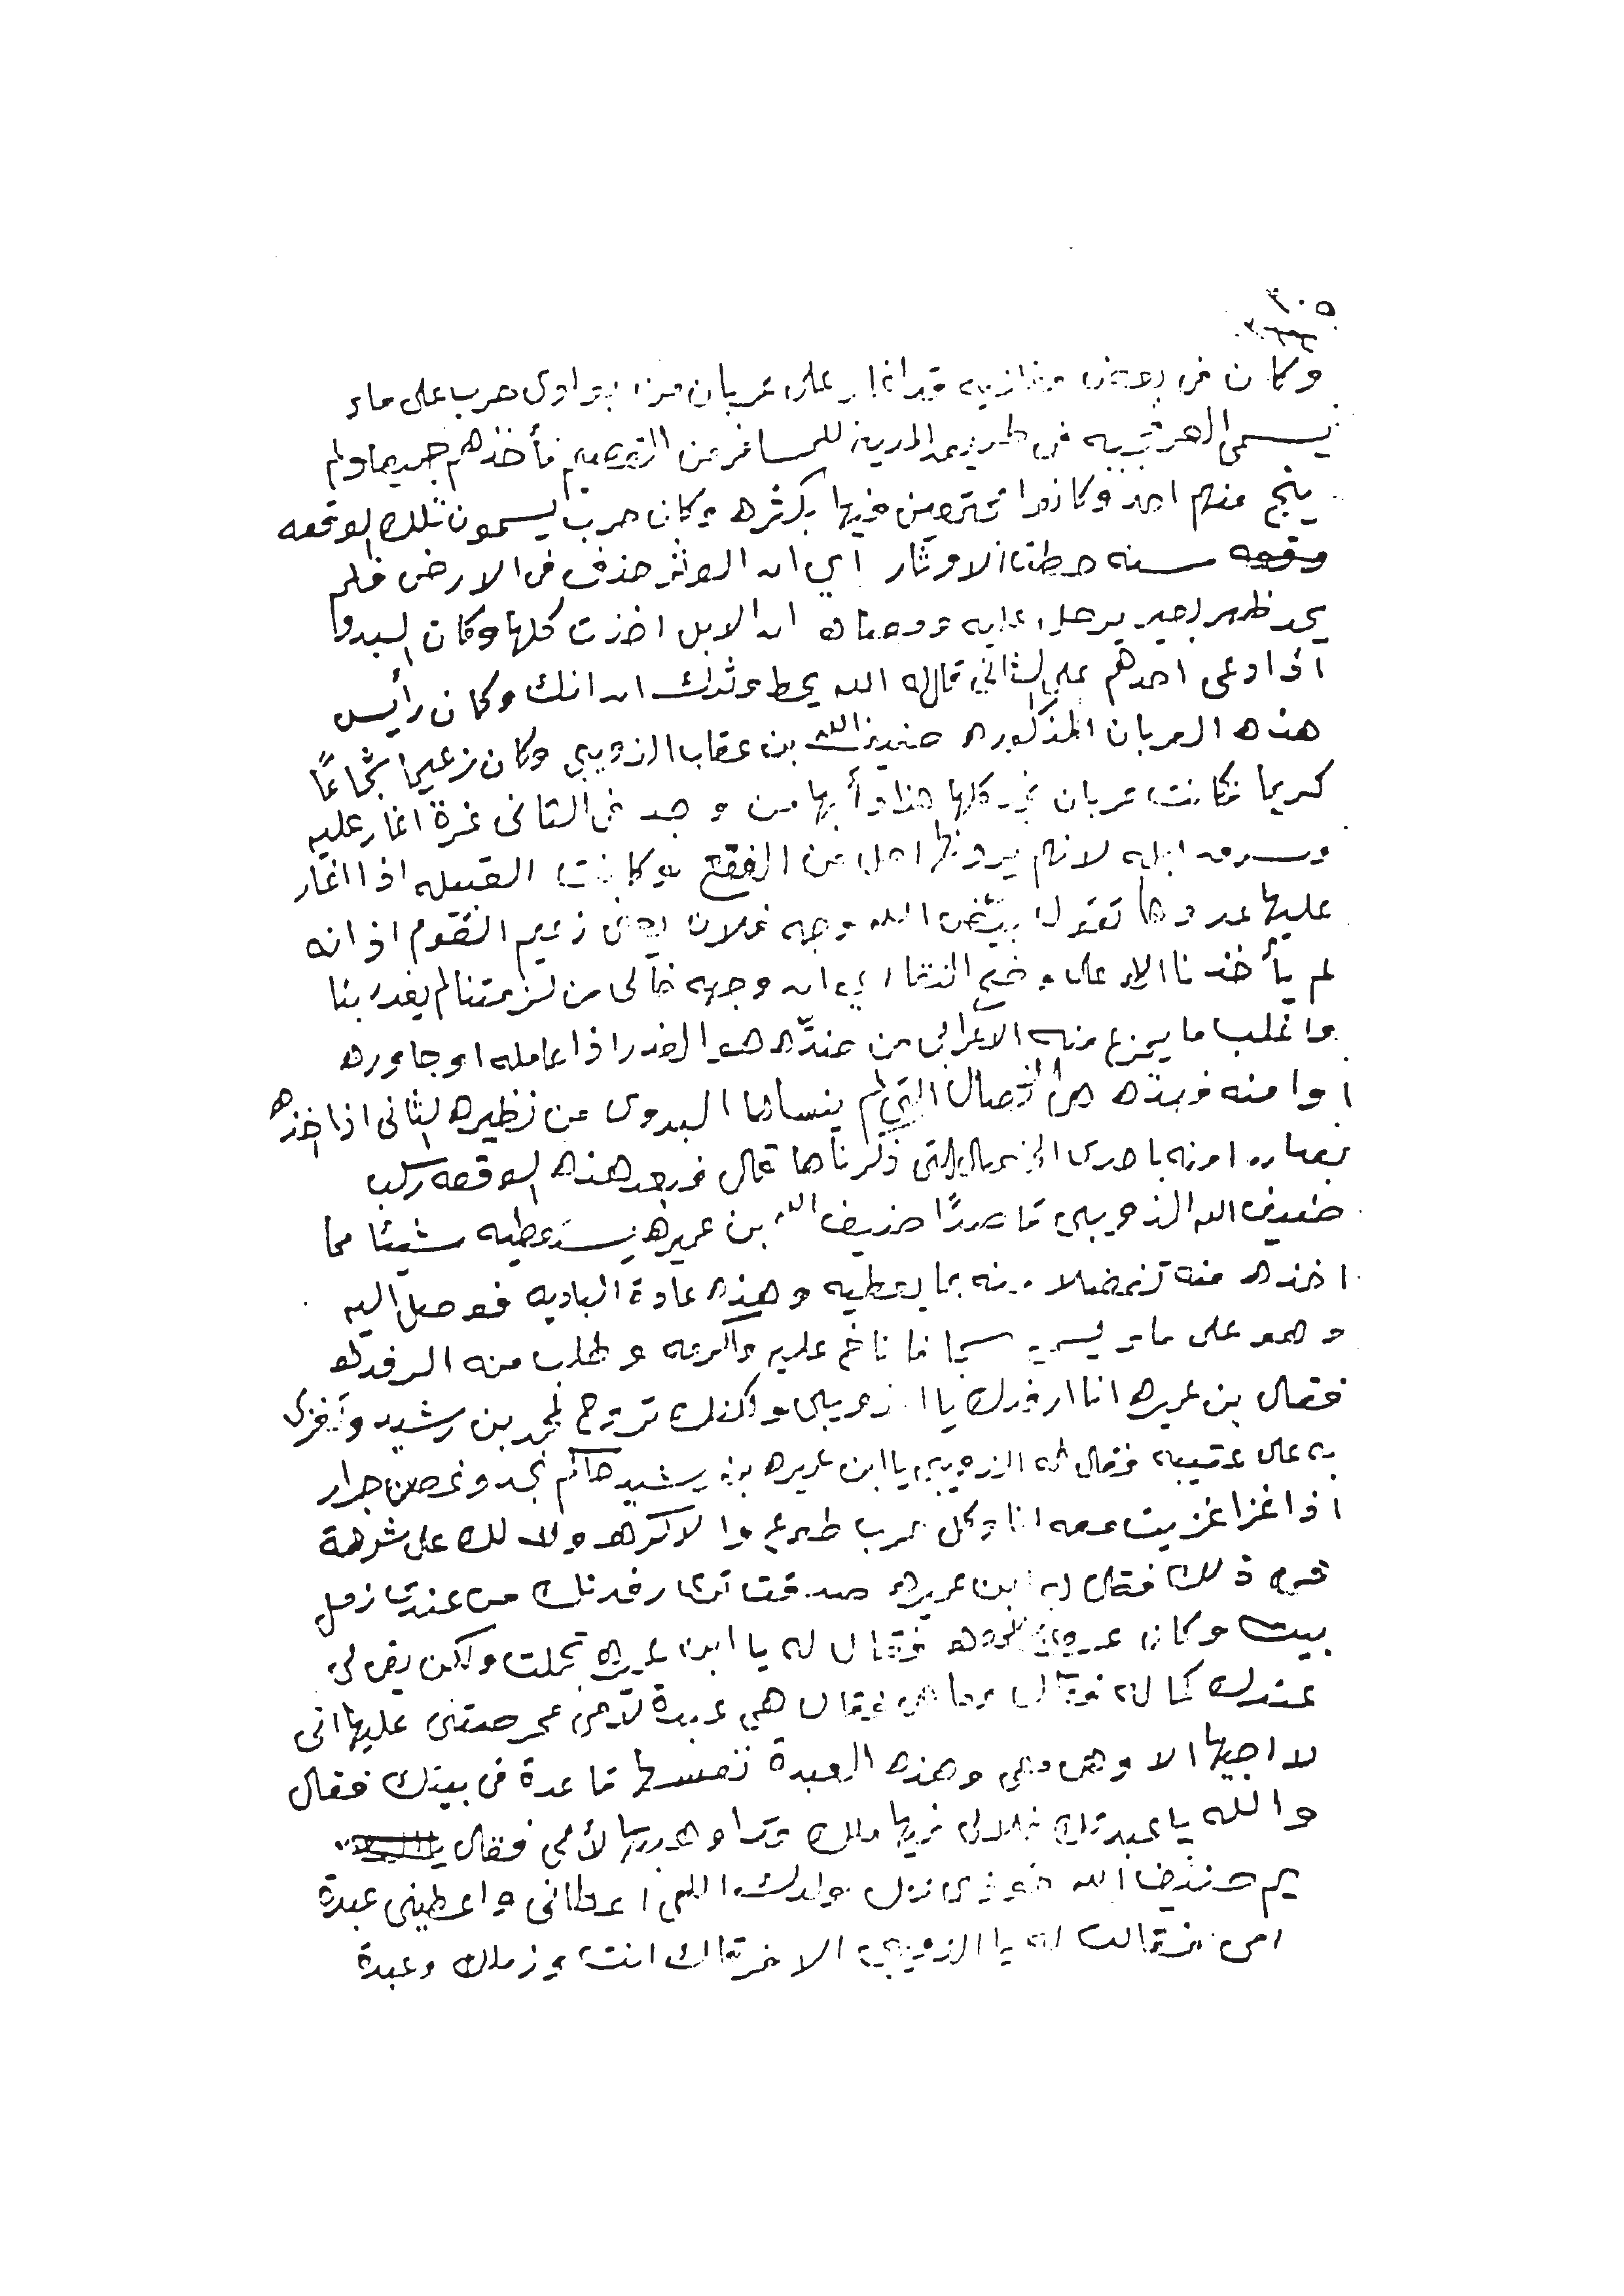 ٣٠٥
وكان في بعض مغازيه قد اغار على عربان من بوادى حرب على ماء
يسمى الهرثميه في طريق المدينة للمسافر من القصيم فأخذهم جميعا ولم
ينج منهم احد وكانوا فيها بكثره وكان حرب يسمون تلك الوقعه
سنه حطت الاوثار اي ان الوثر حذف في الارض فلم
يجد ظهر بعير يرحل عليه ومعناه ان الابل اخذت كلها وكان البدو
اذا دعى احدهم على الثاني قال له الله يحط وثرك اي انك وكان رأيس
هذه العربان المذكوره ضيف الله بن عقاب الذويبي وكان زعيما شجاعًا
كريما فكانت عربان نجد كلها هذا دأبها من وجد في الثاني غرة اغار عليه
وسرمد ابله لانهم يرونها احل من الفقع وكانت القبيله اذا اغار
عليها عدوها تقول بيّض الله وجه فلان يعني زعيم القوم اذ انه
لم يأخذنا الا على وضح النقا اي ان وجهه خالى من لزمتنا لم يغدر بنا
واغلب ما يجزع منه الاعرابي من ضدّه هو الغدر اذا عامله او جاوره
أو امنه فهذه هي الخصال التي لم ينساها البدوى من نظيره الثانى اذا اخذه
امنه باحدى الخصال التي ذكرناها قال فبعد هذه الوقعه ركب
ضيف الله الذويبي قاصدًا ضيف الله بن عميره يستعطيه شيئا مما
اخذه منه تفضلا منه بما يعطيه وهذه عادة الباديه فوصل اليه
وهو على ماء يسمى سجا فاناخ عليه واكرمه وطلب منه الرفد له
فقال بن عميره انا ارفدك يا الذويبي ولكنك تروح لمحمد بن رشيد وتغزى
به على عتيبه فقال له الذويبي يا ابن عميره بن رشيد حاكم نجد وغصن جرار
اذا غزا غزيت معه انا وكل حرب طوع والا كره ولا لك على شرهة
في ذلك فقال له ابن عميره صدقت انا رفدتك من عندى زمل
بيت وكان فقال له يا ابن عميره تجملت ولكن بقى لى
عندك كماله فقال وما هي فقال هي عبدة لأمى محرصتنى عليها انى
لا اجيها الا وهى معى وهذه العبدة نفسها قاعدة في بيتك فقال
والله يا عبدتك فلا لى فيها ملك لأمي فقال
يم ضيف الله ولدك اللى اعطانى واعطينى عبدة
امى فقالت له يا الذويبي الا فرقاك انت وزملك وعبدة